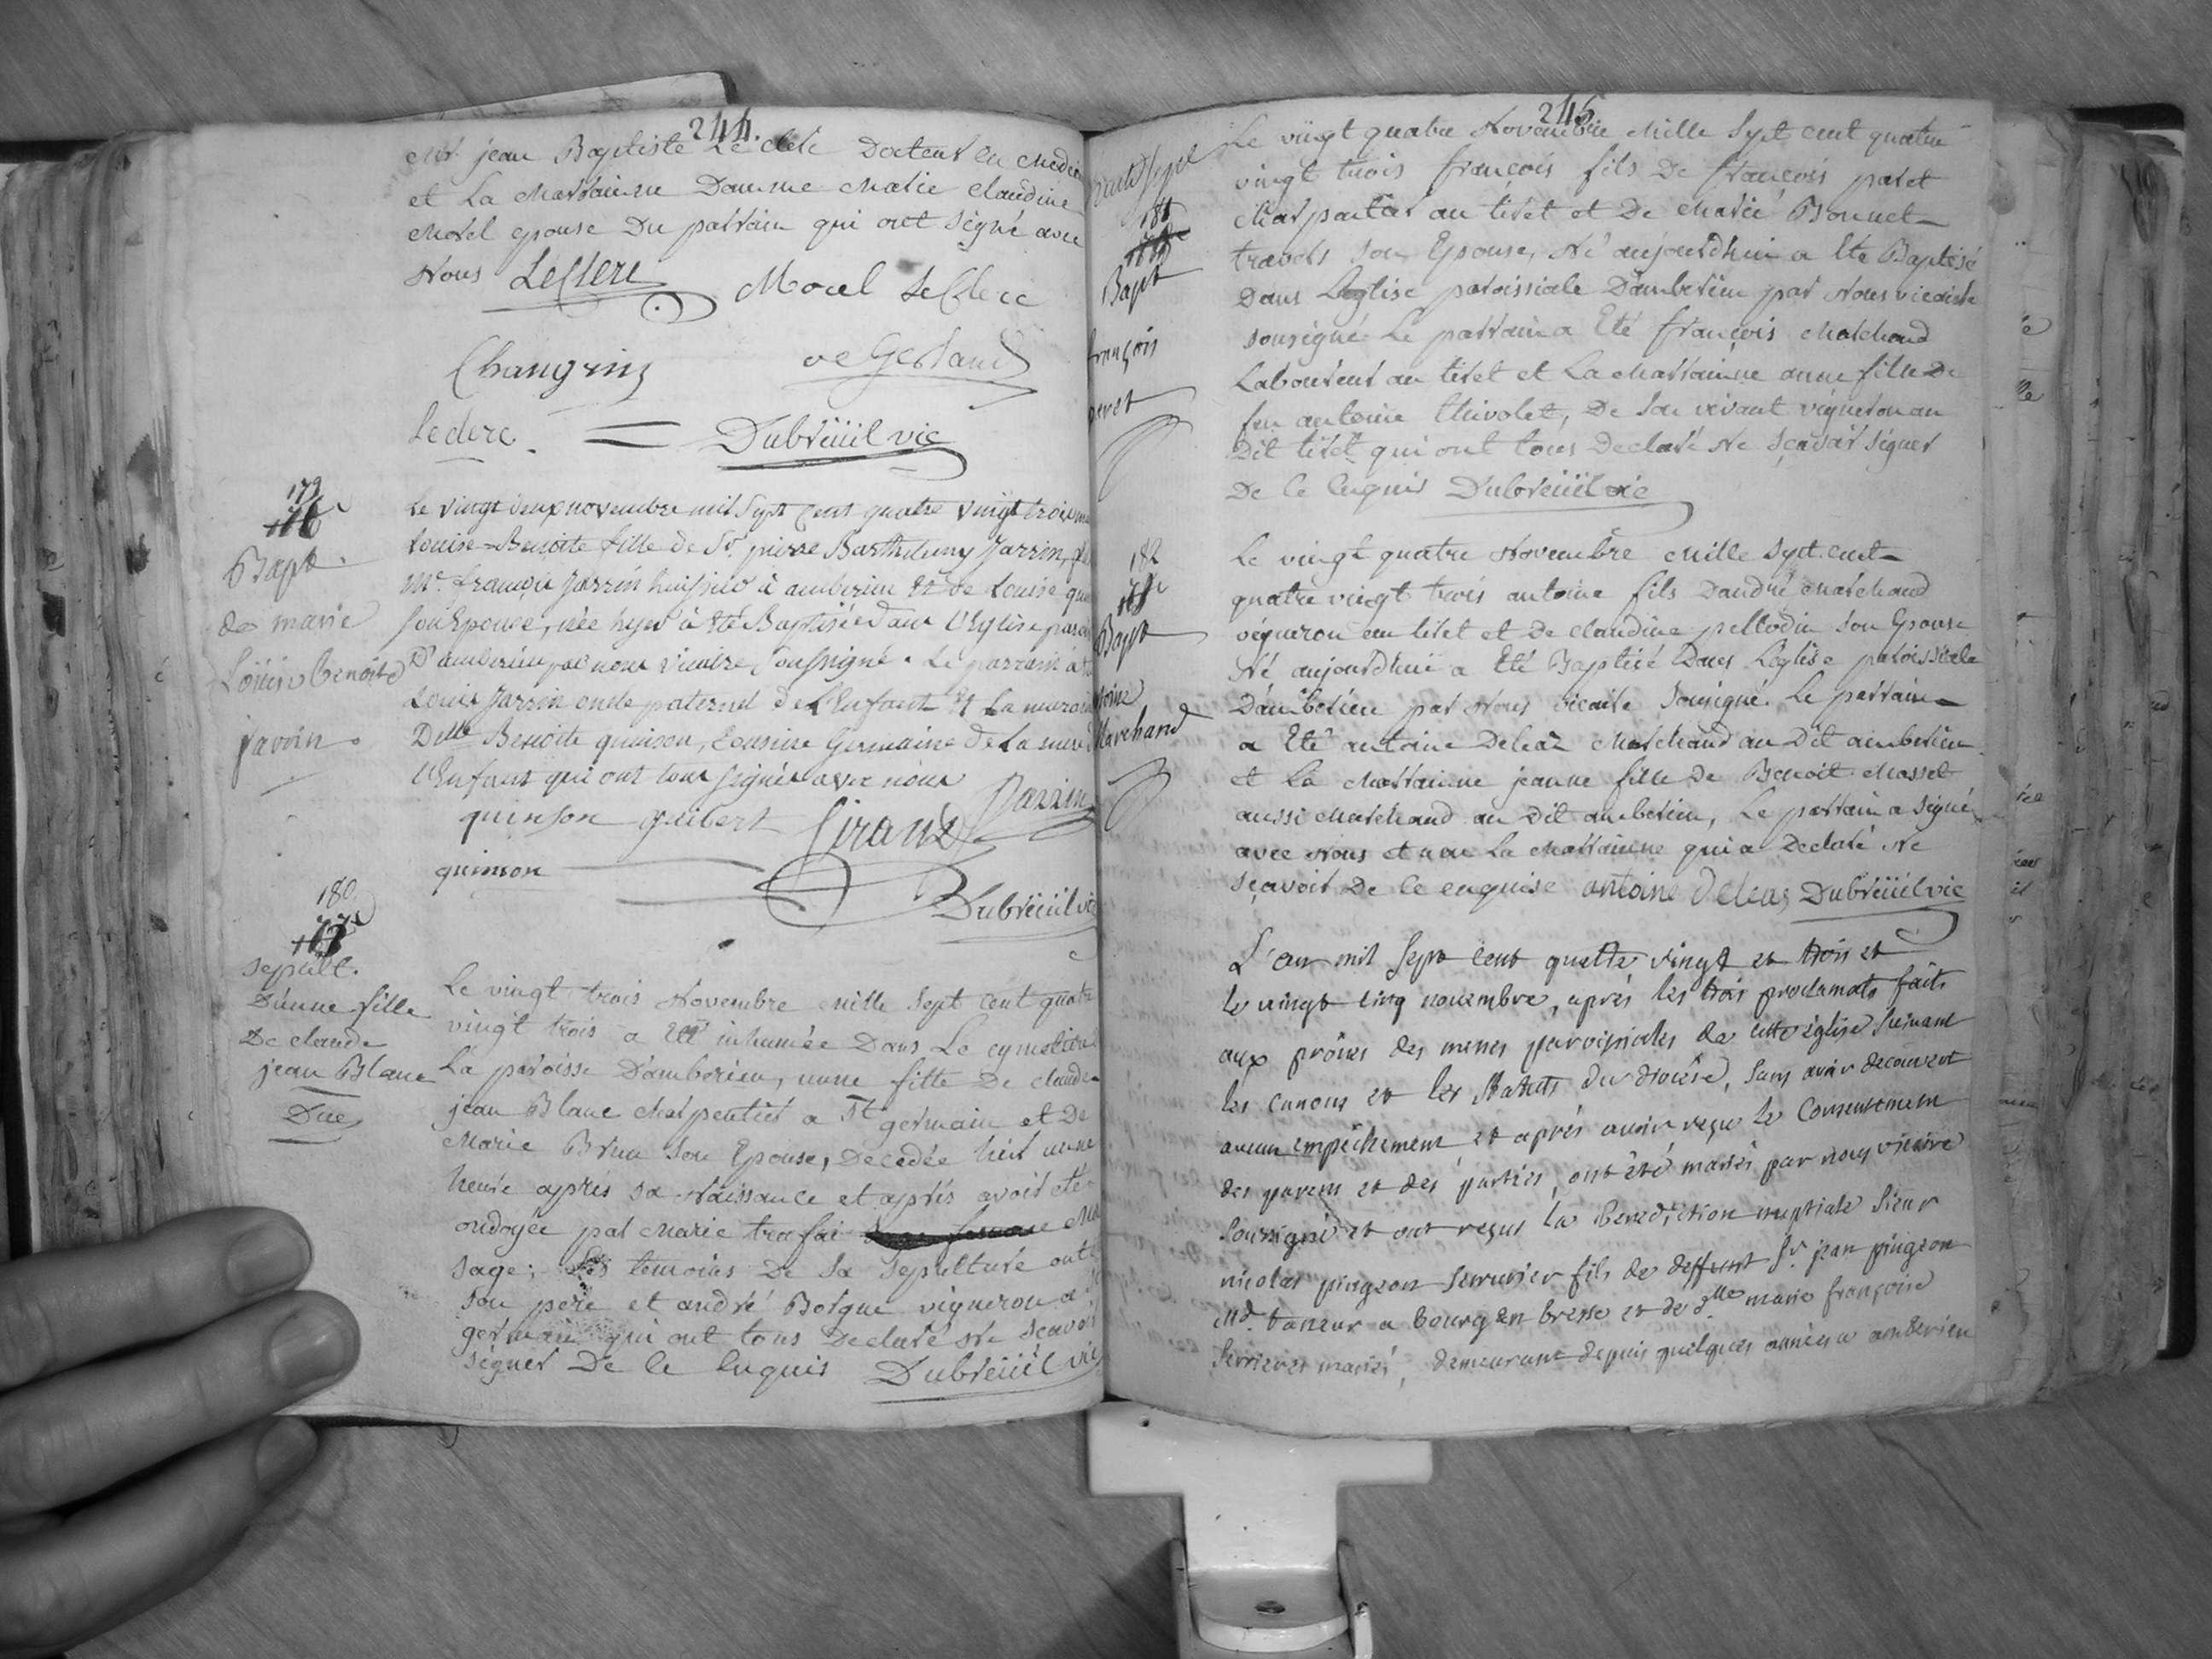 244.
Mr. jean Baptiste Le clerc Docteur en Medecin
et La Marrainne Damme Marie claudine
Morel epouse Du parrain qui ont signé avec
Nous LeClerc Morel LeClerc
Changrin De Gerland
Leclerc. Dubreüil vic
179
Bapt.
de marie
Loüise Benoite
jarrin.
Le vingt deux novembre mil Sept Cent quatre vingt trois
Louise=Benoite fille de Sr. pierre Barthelemy Jarrin,
Me. françois Jarrin huissier à amberieu et de Louise
son Epouse, née hyer à été Baptisée dans l'Eglise
D'amberieu par nous vicaire soussigné. Le parrain a
Louis Jarrin oncle paternel de l'Enfant et La
Delle Benoite quinson, Cousine Germaine de La mere
l'Enfant qui ont tous signés avec nous
quinson guibert Girand Jarrin
quinson
Dubreüil vic
180
Sepult.
D'unne fille
De claude
jean Blanc
Due
Le vingt trois Novembre mille Sept cent quatre
vingt trois a été inhumée Dans Le cymetiere
La paroisse D'amberieu, unne fille De claude
jean Blanc charpentier a St germain et De
Marie Brun son Epouse, Decedée hier unne
heure aprés sa Naissance et aprés avoir eté
ondoyée par Marie trafai
sage; Les temoins De sa sepulture ont
son pere et andré Borgue vigneron a
germain qui ont tous Declaré Ne Sçavoir
signer De ce Enquis Dubreüil vic
245
181
Bapt
françois
Le vingt quatre Novembre Mille Sept cent quatre
vingt trois françois fils De françois paret
Charpentier au tiret et De Marie Bonnet
travers son Epouse, Né aujourd'hui a Eté Baptisé
Dans L'eglise paroissiale D'amberieu par Nous vicaire
sousigné. Le parrain a Eté françois Marchand
Laboureur au tiret et La Marrainne anne fille De
feu antoine thivolet, De son vivant vigneron au
Dit tiret qui ont tous Declaré Ne sçavoir signer
De ce Enquis Dubreüil vic
182
Bapt
Marchand
Le vingt quatre Novembre Mille Sept cent
quatre vingt trois antoine fils D'andré Marchand
vigneron au tiret et De claudine pellodin son Epouse
Né aujourd'huï a Eté Baptisé Dans L'eglise paroissiale
D'amberieu par Nous vicaire sousigné. Le parrain
a Eté antoine Deleaz Marchand au Dit amberieu
et La Marrainne jeanne fille De Benoit Masset
aussi Marchand au Dit amberieu, Le parrain a signé
avec Nous et non La Marrainne qui a Declaré Ne
sçavoir De ce enquise antoine Deleaz Dubreüil vic
L'an mil sept cent quattre vingt et trois et
le vingt cinq novembre, aprés les trois proclamats faits
aux prônes des messes paroissiales de cette église suivant
les canons et les statuts du diocése, sans avoir decouvert
aucun empêchement et aprés avoir reçu le Consentement
des parens et dés parties, ont été mariés par nous vicaire
soussigné et ont reçus la Benediction nuptiale sieur
nicolas pingeon serrurier fils de deffunt Sr. jean pingeon
Md. taneur a bourg en bresse et de Dlle marie françoise
serrieres mariés, demeurant depuis quelques années a amberieu